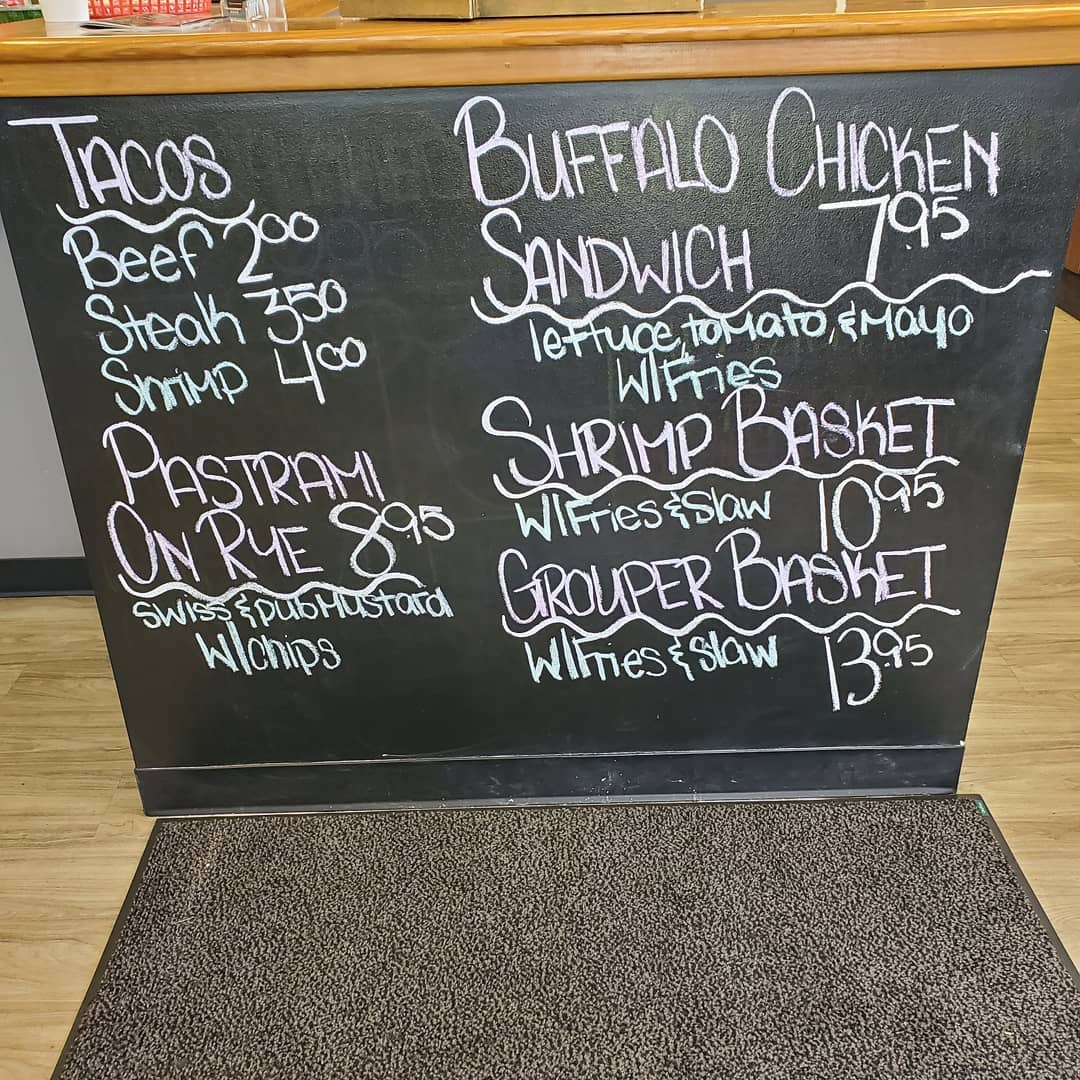 TACOS
Beef 2.00
Steak 3.50
Shrimp 4.00
PASTRAMI
ON RYE 8.95
swiss & pub Mustard
W/chips
BUFFALO CHICKEN
SANDWICH 7.95
lettuce, tomato, & Mayo
W/Fries
SHRIMP BASKET
W/Fries & Slaw 10.95
GROUPER BASKET
W/Fries & Slaw 13.95